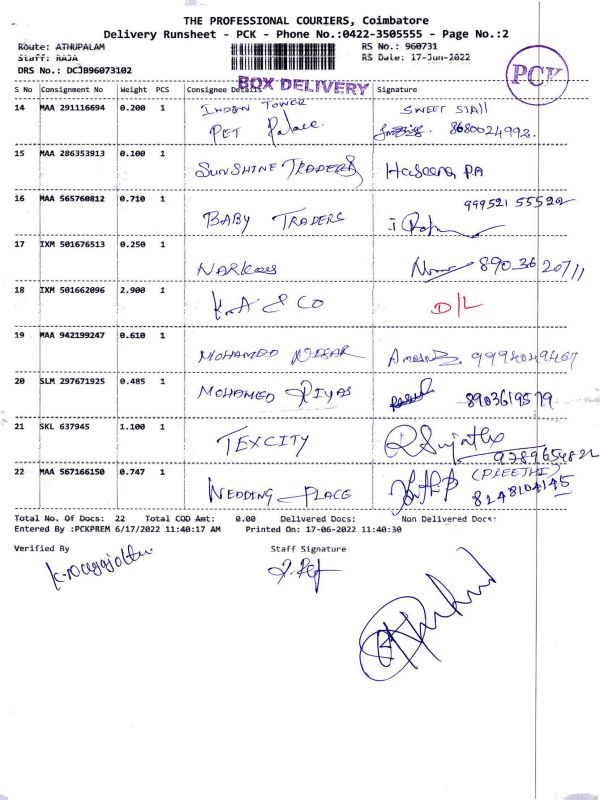 THE PROFESSIONAL COURIERS, Coimbatore
Delivery Runsheet - PCK - Phone No.:0422-3505555 - Page No.:2
Route: ATHUPALAM RS No.: 960731
Staff: RAJA RS Date: 17-Jun-2022
DRS No.: DCJB96073102
PCK
BOX DELIVERY
S No Consignment No Weight PCS Consignee Details Signature
14 MAA 291116694 0.200 1 INDON TOWER SWEET STALL
PET Palace. 8680024992.
15 MAA 286353913 0.100 1
SUNSHINE TRADERS Haseena, PA
16 MAA 565760812 0.710 1 999521 55522
BABY TRADERS
17 IXM 501676513 0.250 1
8903620711
18 IXM 501662096 2.900 1 K.A & CO D/L
19 MAA 942199247 0.610 1
MOHAMED NISAR 9994049467
20 SLM 297671925 0.485 1 MOHAMED RIYAS 8903619579
21 SKL 637945 1.100 1 TEXCITY R Sujatha
9789654822
22 MAA 567166150 0.747 1 WEDDING PLACE (PREETHI)
8248104145
Total No. Of Docs: 22 Total COD Amt: 0.00 Delivered Docs: Non Delivered Docs:
Entered By :PCKPREM 6/17/2022 11:40:17 AM Printed On: 17-06-2022 11:40:30
Verified By Staff Signature